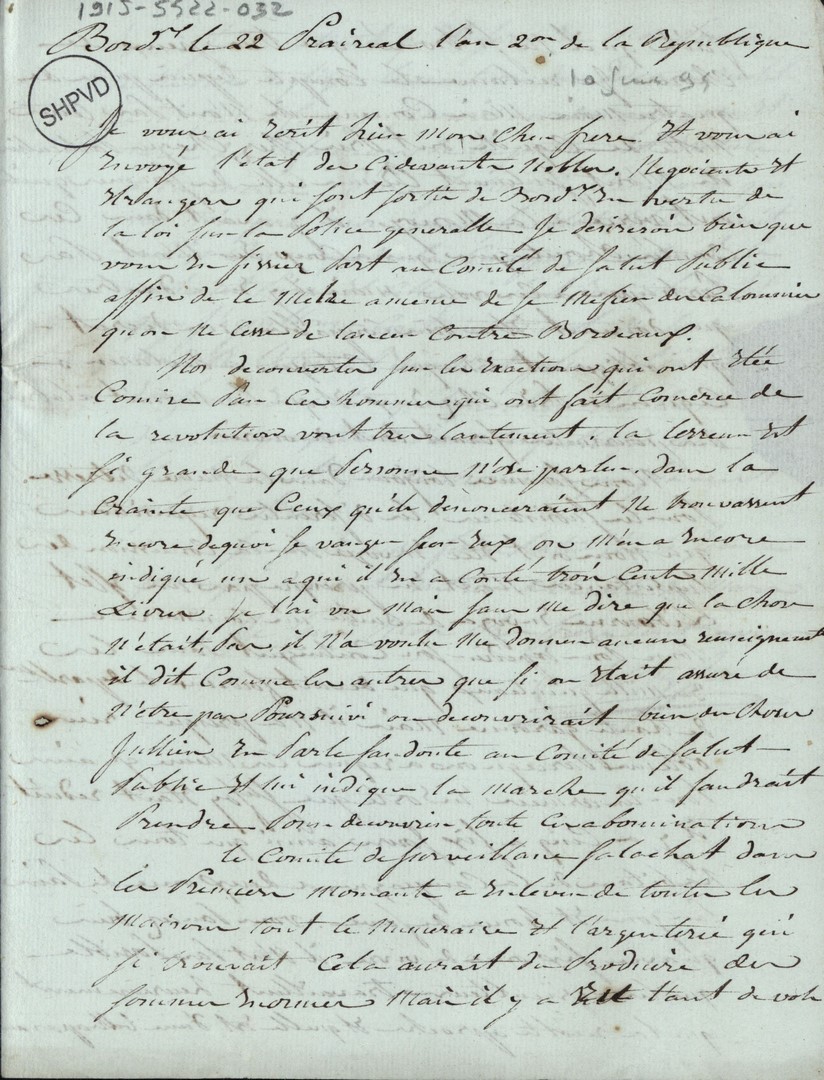 1915-5522-032
Bord.x le 22 Praireal l'an 2.em de la Republique
10 Juin 95
SHPVD
Je vous ai ecrit hier mon cher frere et vous ai
envoyé l'etat des Cidevants Nobles. Negociants et
etrangers qui sont sortis de Bord.x en vertu de
la loi sur la Police generalle je desirerois bien que
vous en fissies Part au Comité de Salut Public
affin de le metre amême de se mefier des Calomnies
qu'on ne Cesse de lancer Contre Bordeaux.
Nos decouvertes sur les exactions qui ont étée
Comise Par Ces hommes qui ont fait Comerce de
la revolution vont tres lantement. la terreur est
si grande que Personne n'ose parler, dans la
Crainte que Ceux qu'ils dénonceraient ne trouvassent
encore dequoi se vanger sur eux on m'en a encore
indiqué un a qui il en a Couté trois Cents Mille
Livres je l'ai vu mais sans me dire que la chose
n'était Pas il n'a voulu me donner aucun renseignements
il dit Comme les autres que si on etait assuré de
n'être pas Poursuivi on decouvrirait bien des Choses
Jullien en Parle sans doute au Comité de Salut
Public et lui indique la marche qu'il faudrait
Prendre Pour decouvrir toute Ces abominations
le Comité de surveillance s'atachat dans
les Premiers momants a enlever de toutes les
maisons tout le numeraire et l'argenterie qui
si trouvait Cela aurait du Produire des
sommes enormes Mais il y a eut tant de vols